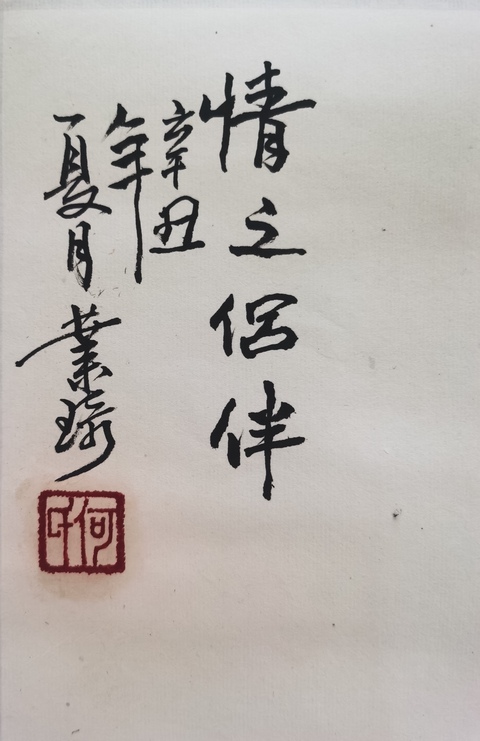 情之侣伴
辛丑
年
夏月業
何氏